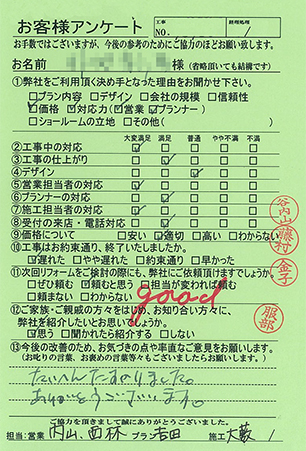 お客様アンケート
工事
NO.
経理処理
お手数ではございますが、今後の参考のためにご協力のほどお願い致します。
お名前 様(省略頂いても結構です)
①弊社をご利用頂く決め手となった理由をお聞かせ下さい。
□プラン内容 □デザイン □会社の規模 □信頼性
☑価格 ☑対応力(☑営業 ☑プランナー)
□ショールームの立地 □その他( )
大変満足 満足 普通 やや不満 不満
②工事中の対応
③工事の仕上がり
④デザイン
⑤営業担当者の対応
⑥プランナーの対応
⑦施工担当者の対応
⑧受付の来店・電話対応
⑨価格について □安い ☑適切 □高い □わからない
⑩工事はお約束通り、終了いたしましたか。
☑遅れた □やや遅れた □約束通り □早かった
⑪次回リフォームをご検討の際にも、弊社にご依頼頂けますでしょうか。
□ぜひ頼む ☑頼むと思う □担当が変われば頼む
□頼まない □わからない
good
⑫ご家族・ご親戚の方々をはじめ、お知り合い方々に、
弊社を紹介したいとお思いでしょうか。
☑思う □聞かれたら紹介する □しない
⑬今後の改善のため、お気づきの点や率直なご意見をお願いします。
(お叱りの言葉、お褒めの言葉等々もございましたらお願いします。)
たいへんたすかりました。
ありがとうございます。
谷内山
藤村
金子
服部
ご協力を頂きまして誠にありがとうございました。
担当:営業 内山、西林 プラン 吉田 施工 大藪 /